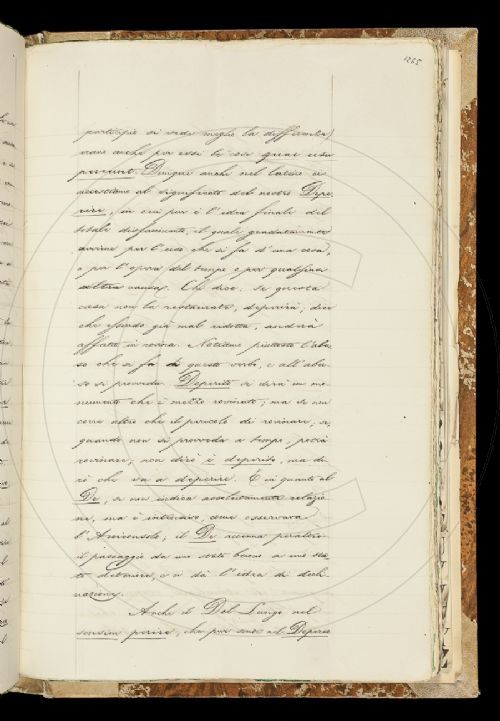 1265
participio si vede meglio la differenza
vano anche per essi le
periunt. Dunque anche nel latino si
al significato del nostro Depe-
rire, in cui pure è l'idea finale del
totale disfacimento, il quale gradatamente
avviene per l'uso che si fa d'una cosa,
o per l'opera del tempo o per qualsivoglia
altra causa. Chi dice: se questa
casa non la restaurate, deperirà; dice
che essendo già mal ridotta, andrà
affatto in rovina. Notiamo piuttosto l'abu-
so che si fa di questo verbo, e all'abu-
so si provveda. Deperito si dirà un mo-
numento che è mezzo rovinato; ma se non
corre altro che il pericolo di rovinare, se,
quando non si provveda a tempo, potrà
rovinare, non dirò è deperito, ma di-
rò che va a deperire. E in quanto al
De, se non indica assolutamente relazio-
ne, ma è intensivo, come osservava
l'Arciconsolo, il De accenna peraltro
il passaggio da uno stato buono a uno sta-
to deteriore, e ci dà l'idea di decli-
nazione.
Anche il Del Lungo nel
sensim perire, che pur sono nel Deperire